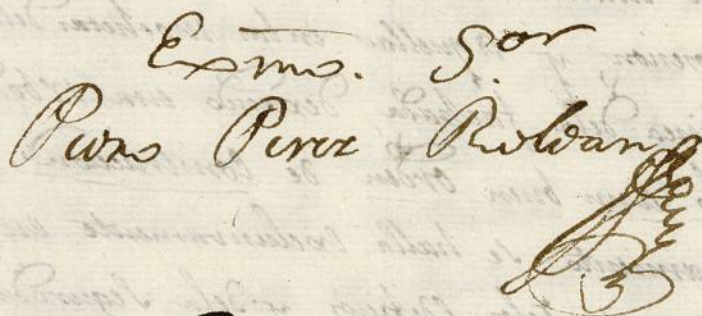 Exmo. S.or
Pedro Perez Roldan